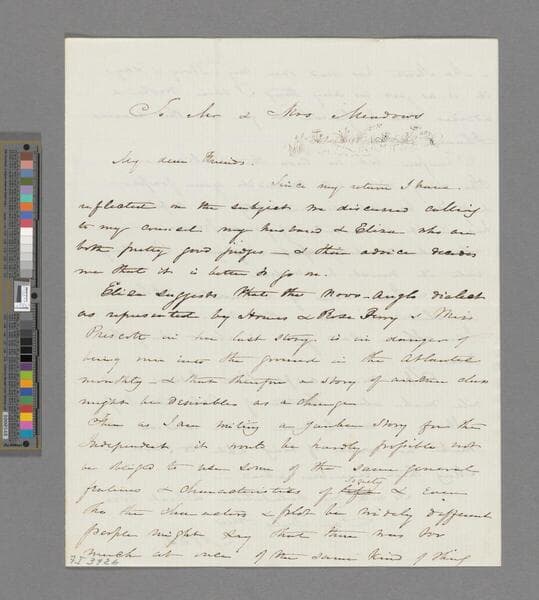 To Mr & Mrs Meadows
My dear Friends.
Since my return I have
reflected on the subject we discussed calling
to my counsel my husband & Eliza who are
both pretty good judges — & their advice decides
me that it is better to go on.
Eliza suggests that the Novo-Anglo dialect
as represented by Holmes & Rose Terry & Miss
Prescott in her last story is in danger of
being run into the ground in the Atlantic
monthly — & that therefore a story of another class
might be desirable as a change
Then as I am writing a Yankee story for the
Independent it would be hardly possible not
be obliged to use some of the same general
features & characteristics of society & even
tho the characters & plot be widely different
people might say that there was too
much at once of the same kind of thing
7I 3926